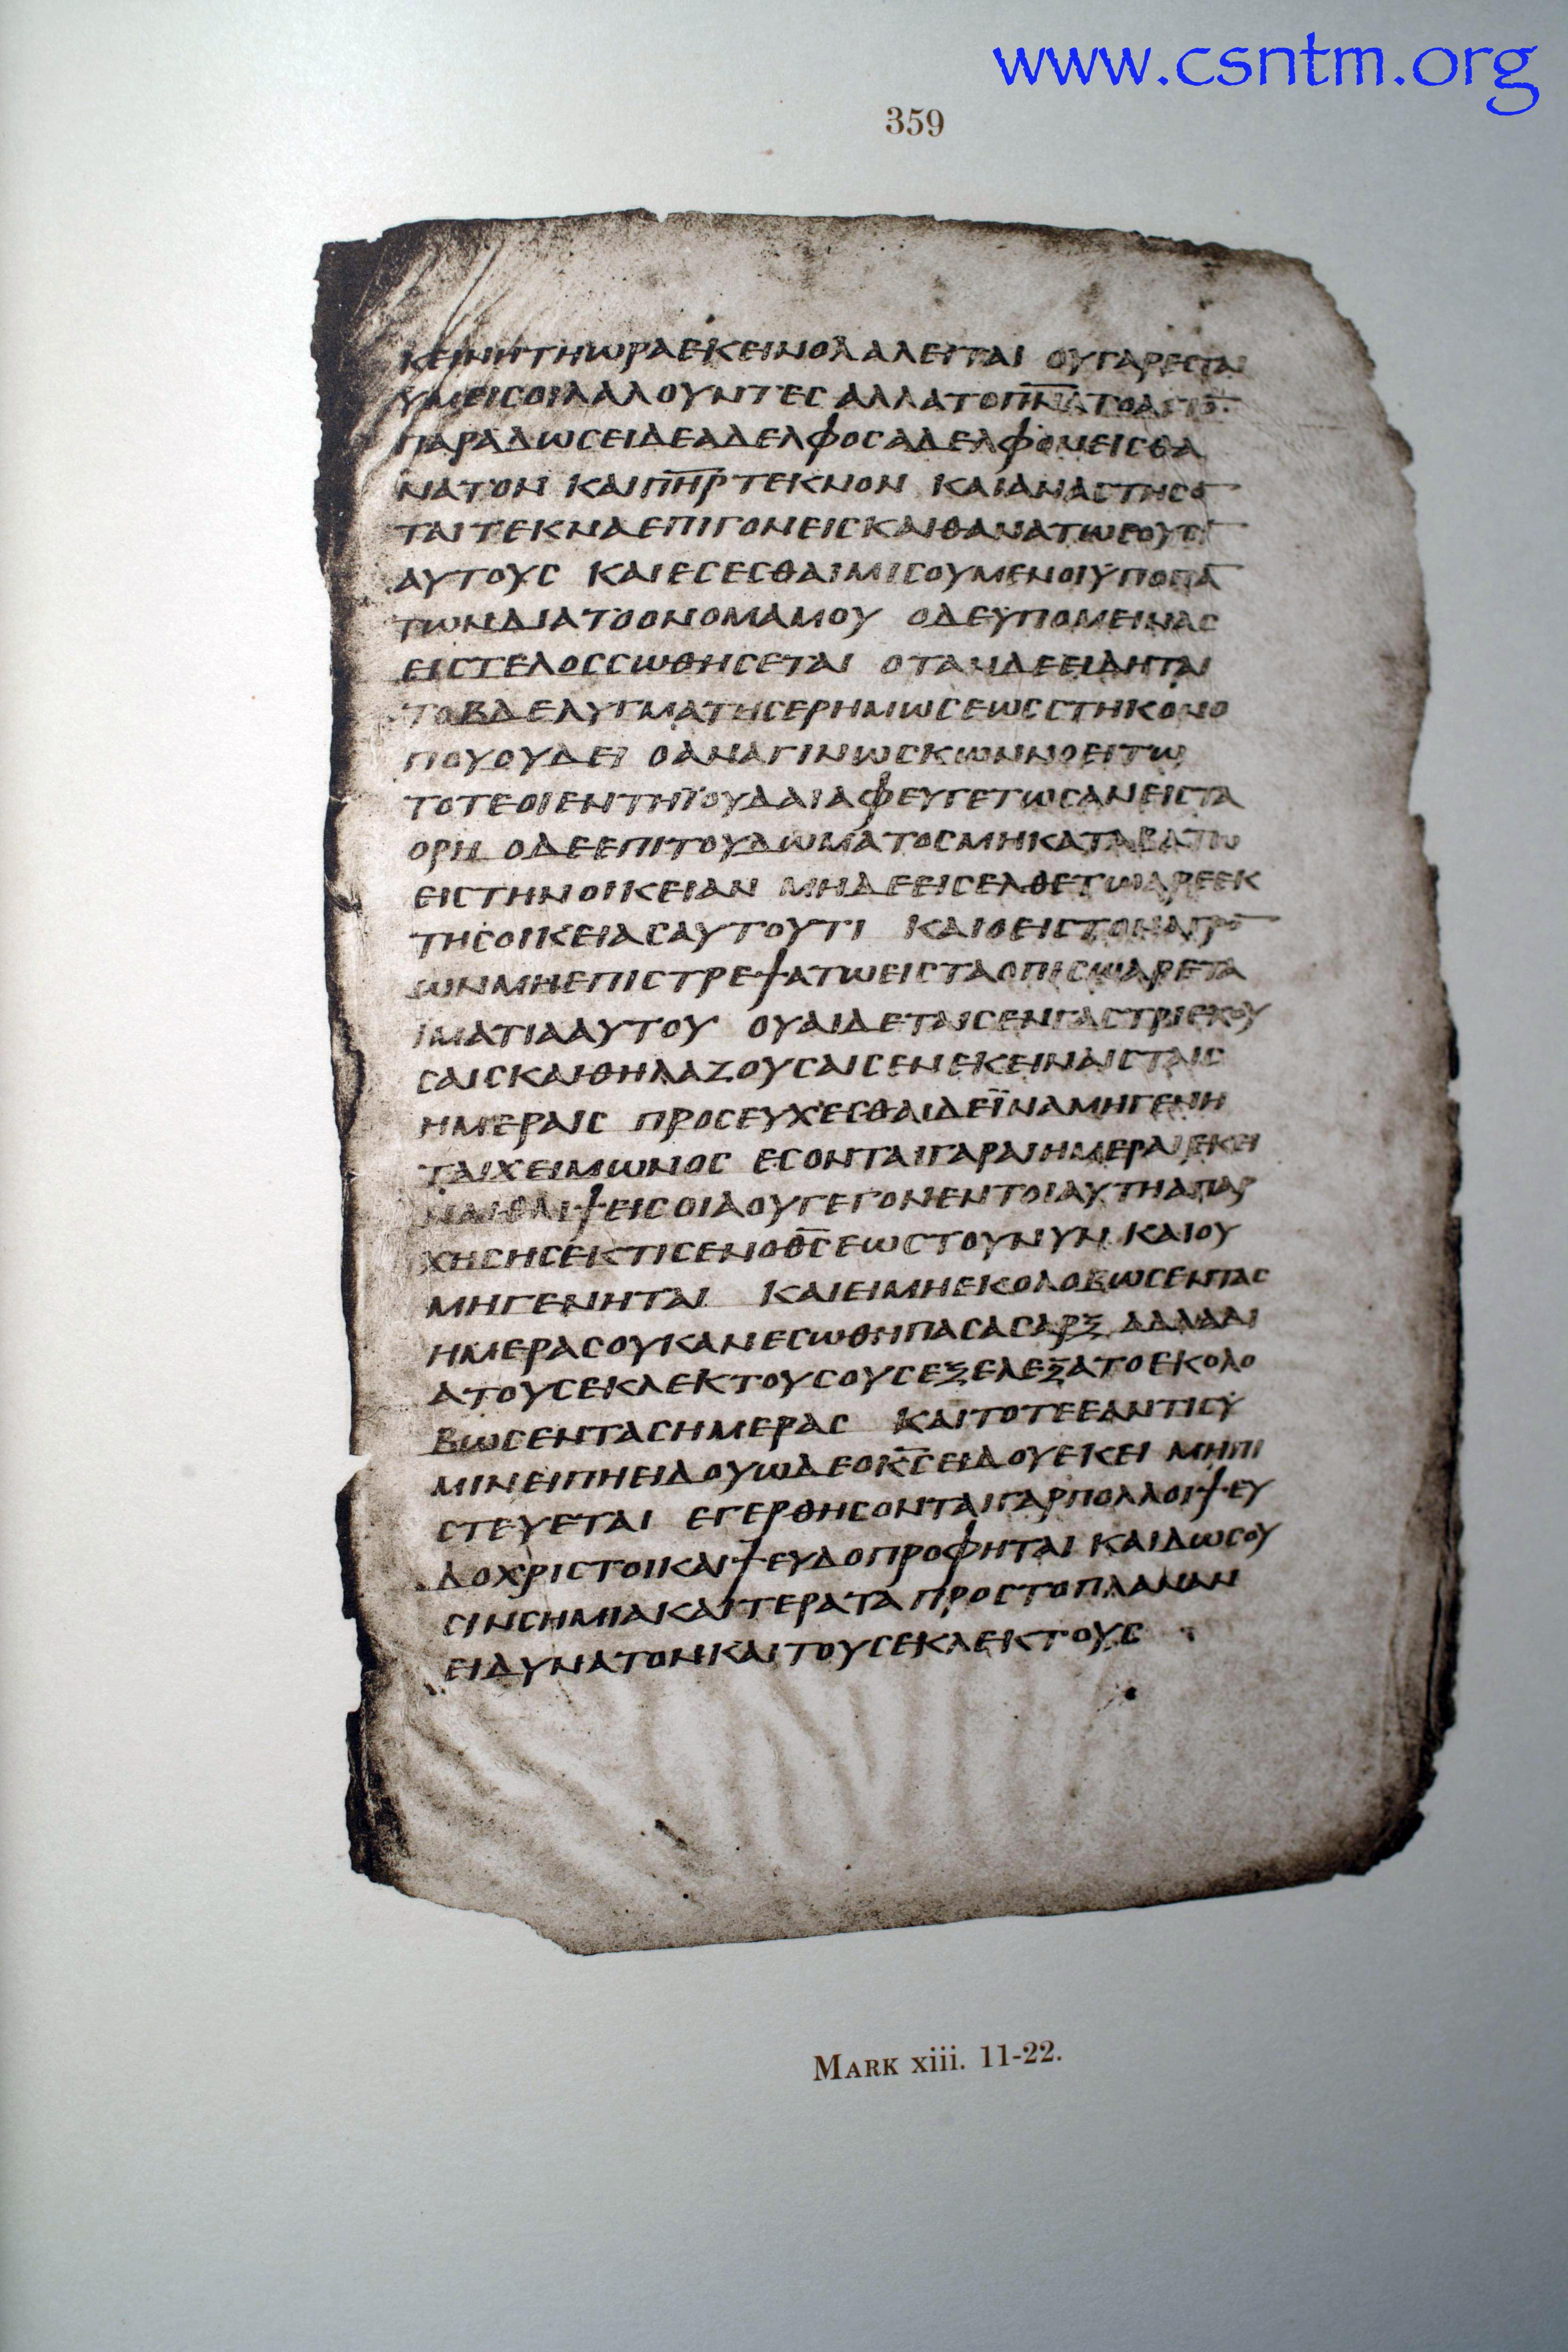 www.csntm.org
359
ΚΕΙΝΗΤΗΩΡΑΕΚΕΙΝΟΛΑΛΕΙΤΑΙ ΟΥΓΑΡΕΣΤΑΙ
ΥΜΕΙϹΟΙΛΑΛΟΥΝΤΕϹ ΑΛΛΑΤΟΠ̅Ν̅Α̅ΤΟΑΓΙΟ̅
ΠΑΡΑΔΩϹΕΙΔΕΑΔΕΛΦΟϹΑΔΕΛΦΟΝΕΙϹΘΑ
ΝΑΤΟΝ ΚΑΙΠ̅Η̅Ρ̅ΤΕΚΝΟΝ ΚΑΙΑΝΑϹΤΗϹΟ̅
ΤΑΙΤΕΚΝΑΕΠΙΓΟΝΕΙϹΚΑΙΘΑΝΑΤΩϹΟΥϹΙ̅
ΑΥΤΟΥϹ ΚΑΙΕϹΕϹΘΑΙΜΙϹΟΥΜΕΝΟΙΥΠΟΠΑ̅
ΤΩΝΔΙΑΤΟΟΝΟΜΑΜΟΥ ΟΔΕΥΠΟΜΕΙΝΑϹ
ΕΙϹΤΕΛΟϹϹΩΘΗϹΕΤΑΙ ΟΤΑΝΔΕΕΙΔΗΤΑΙ
ΤΟΒΔΕΛΥΓΜΑΤΗϹΕΡΗΜΩϹΕΩϹϹΤΗΚΟΝΟ
ΠΟΥΟΥΔΕΙ ΟΑΝΑΓΙΝΩϹΚΩΝΝΟΕΙΤΩ
ΤΟΤΕΟΙΕΝΤΗΪΟΥΔΑΙΑΦΕΥΓΕΤΩϹΑΝΕΙϹΤΑ
ΟΡΗ ΟΔΕΕΠΙΤΟΥΔΩΜΑΤΟϹΜΗΚΑΤΑΒΑΤΩ
ΕΙϹΤΗΝΟΙΚΕΙΑΝ ΜΗΔΕΕΙϹΕΛΘΕΤΩΑΡΕΕΚ
ΤΗϹΟΙΚΕΙΑϹΑΥΤΟΥΤΙ ΚΑΙΟΕΙϹΤΟΝΑΓΡΟ̅
ΩΝΜΗΕΠΙϹΤΡΕΨΑΤΩΕΙϹΤΑΟΠΙϹΩΑΡΕΤΑ
ΙΜΑΤΙΑΑΥΤΟΥ ΟΥΑΙΔΕΤΑΙϹΕΝΓΑϹΤΡΙΕΧΟΥ
ϹΑΙϹΚΑΙΘΗΛΑΖΟΥϹΑΙϹΕΝΕΚΕΙΝΑΙϹΤΑΙϹ
ΗΜΕΡΑΙϹ ΠΡΟϹΕΥΧΕϹΘΑΙΔΕΪΝΑΜΗΓΕΝΗ
ΤΑΙΧΕΙΜΩΝΟϹ ΕϹΟΝΤΑΙΓΑΡΑΙΗΜΕΡΑΙΕΚΕΙ
ΝΑΙΘΛΙΨΕΙϹΟΙΑΟΥΓΕΓΟΝΕΝΤΟΙΑΥΤΗΑΠΑΡ
ΧΗϹΗϹΕΚΤΙϹΕΝΟΘ̅Ϲ̅ΕΩϹΤΟΥΝΥΝ ΚΑΙΟΥ
ΜΗΓΕΝΗΤΑΙ ΚΑΙΕΙΜΗΕΚΟΛΟΒΩϹΕΝΤΑϹ
ΗΜΕΡΑϹΟΥΚΑΝΕϹΩΘΗΠΑϹΑϹΑΡΞ ΑΛΛΑΔΙ
ΑΤΟΥϹΕΚΛΕΚΤΟΥϹΟΥϹΕΞΕΛΕΞΑΤΟΕΚΟΛΟ
ΒΩϹΕΝΤΑϹΗΜΕΡΑϹ ΚΑΙΤΟΤΕΕΑΝΤΙϹΥ
ΜΙΝΕΙΠΗΕΙΔΟΥΩΔΕΟΚ̅Ϲ̅ΕΙΔΟΥΕΚΕΙ ΜΗΠΙ
ϹΤΕΥΕΤΑΙ ΕΓΕΡΘΗϹΟΝΤΑΙΓΑΡΠΟΛΛΟΙΨΕΥ
ΔΟΧΡΙϹΤΟΙΚΑΙΨΕΥΔΟΠΡΟΦΗΤΑΙ ΚΑΙΔΩϹΟΥ
ϹΙΝϹΗΜΙΑΚΑΙΤΕΡΑΤΑΠΡΟϹΤΟΠΛΑΝΑΝ
ΕΙΔΥΝΑΤΟΝΚΑΙΤΟΥϹΕΚΛΕΚΤΟΥϹ
MARK xiii. 11-22.